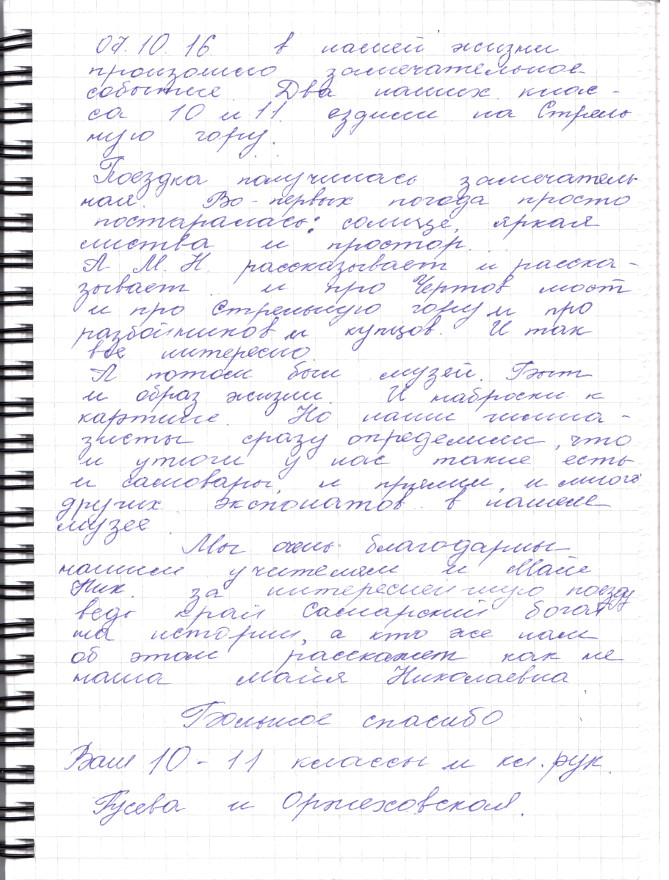 07.10.16 в нашей жизни
произошло замечательное
событие. Два наших клас-
са 10 и 11 ездили на Стрель
ную гору.
Поездка получилась замечатель
ная. Во-первых погода просто
постаралась: солнце, яркая
листва и простор...
А М.Н. рассказывает и расска-
зывает и про Чертов мост
и про Стрельную гору и про
разбойников и купцов. И так
все интересно.
А потом был музей. Быт
и образ жизни. И наброски к
картине. Но наши гимна-
зисты сразу определили, что
и утюги у нас такие есть
и самовары, и прялки, и много
других экспонатов в нашем
музее.
Мы очень благодарны
нашим учителям и Майе
Ник. за интереснейшую поездку
ведь край Самарский богат
на истории, а кто же нам
об этом расскажет как не
наша Майя Николаевна
Большое спасибо
Ваш 10-11 классы и кл. рук.
Гусева и Оржеховская.